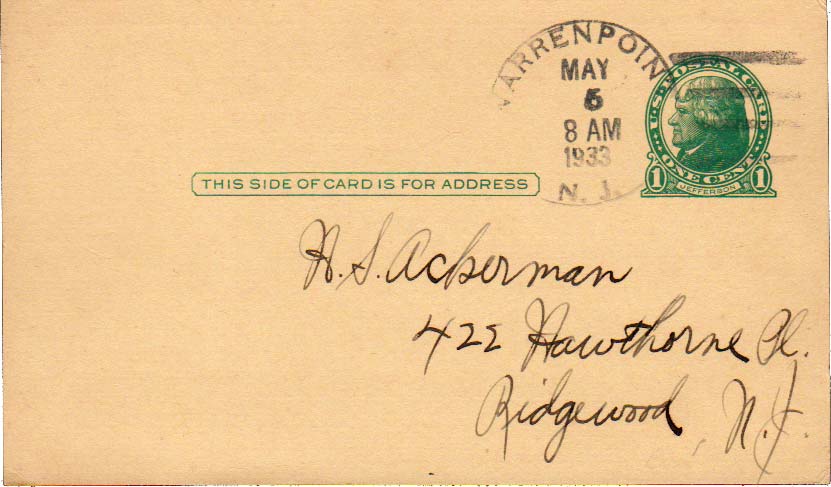 WARRENPOIN
MAY
6
8 AM
1933
N. J.
U.S. POSTAL CARD
ONE CENT
1 JEFFERSON 1
THIS SIDE OF CARD IS FOR ADDRESS
H. S. Ackerman
422 Hawthorne Pl.
Ridgewood, N.J.